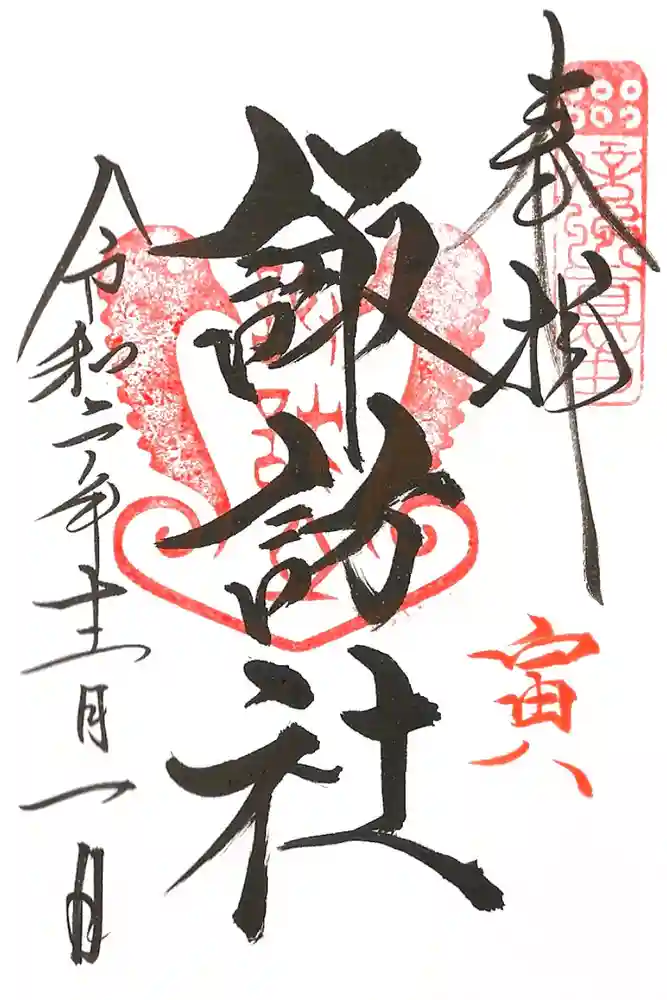 奉拝
寅
諏訪社
令和二年十二月一日